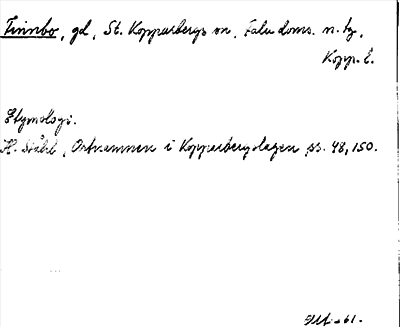 Finnbo, gd, St. Kopparbergs sn, Falu doms. n. tg,
Kopp. l.
Etymologi.
H. Ståhl, Ortnamnen i Kopparbergslagen ss. 48, 150.